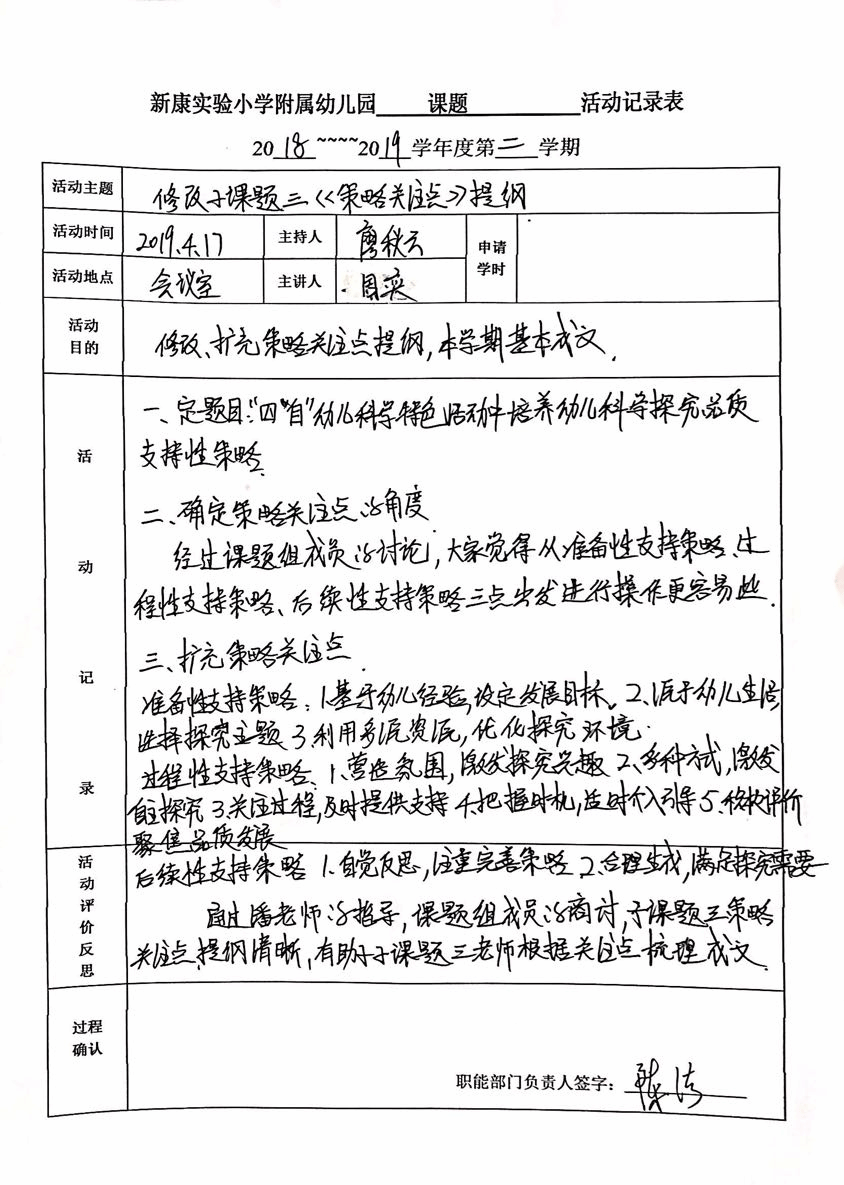 新康实验小学附属幼儿园 课题 活动记录表
2018~~~~2019学年度第二学期
活动主题 修改子课题三《策略关注点》提纲
活动时间 2019.4.17 主持人 廖秋云 申请学时
活动地点 会议室 主讲人 周奕
活动目的 修改、扩充策略关注点提纲,本学期基本成文.
活动记录
一、定题目:“四“自”幼儿科学特色活动中培养幼儿科学探究品质
支持性策略.
二、确定策略关注点的角度
经过课题组成员的讨论,大家觉得从准备性支持策略、过
程性支持策略、后续性支持策略三点出发进行操作更容易些.
三、扩充策略关注点.
准备性支持策略:1.基于幼儿经验,设定发展目标。2、源于幼儿生活,
选择探究主题 3.利用多元资源,优化探究环境.
过程性支持策略、1、营造氛围,激发探究兴趣 2、多种方式,激发
自主探究 3.关注过程,及时提供支持 4.把握时机,适时介入引导 5、积极评价
聚焦品质发展
后续性支持策略 1.自觉反思,注重完善策略 2、合理生成,满足探究需要
活动评价反思
通过潘老师的指导,课题组成员的商讨,子课题三策略
关注点提纲清晰,有助于子课题三老师根据关注点梳理成文.
过程确认
职能部门负责人签字: